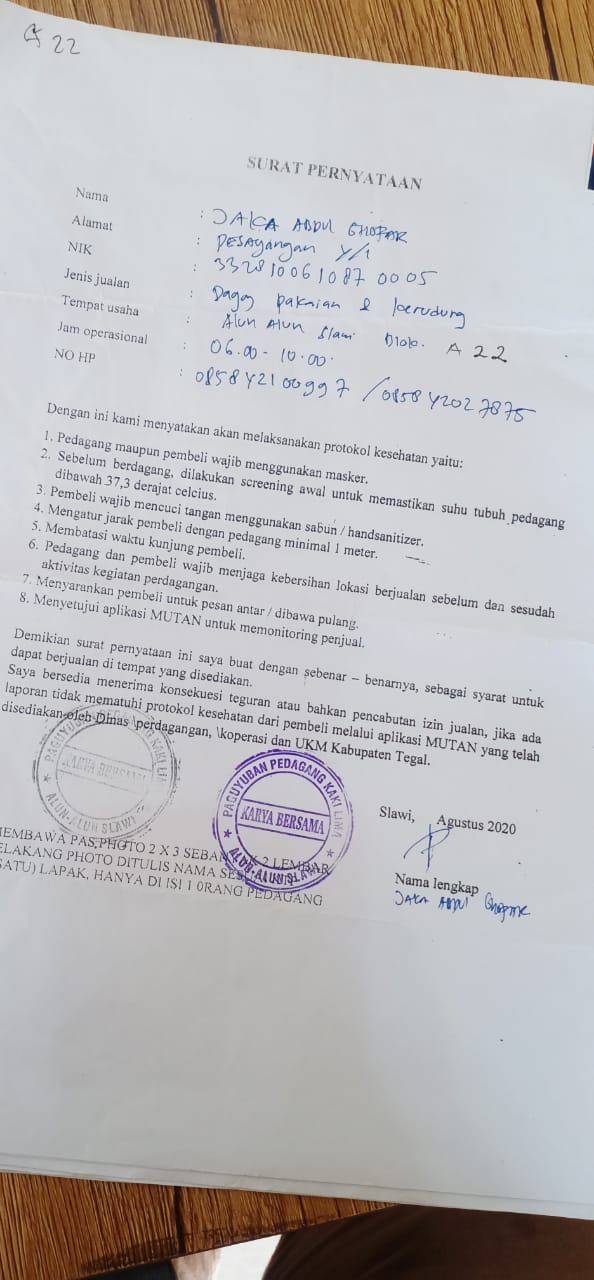 A 22
SURAT PERNYATAAN
Nama : JAKA ABDUL GHOFAR
Alamat : PESAyangan Y/1
NIK : 3328100610870005
Jenis jualan : Dagang pakaian & kerudung
Tempat usaha : Alun Alun Slawi Blok. A 22
Jam operasional : 06.00 - 10.00.
NO HP : 0858 4210 0997 / 0858 42027875
Dengan ini kami menyatakan akan melaksanakan protokol kesehatan yaitu:
1. Pedagang maupun pembeli wajib menggunakan masker.
2. Sebelum berdagang, dilakukan screening awal untuk memastikan suhu tubuh pedagang
dibawah 37,3 derajat celcius.
3. Pembeli wajib mencuci tangan menggunakan sabun / handsanitizer.
4. Mengatur jarak pembeli dengan pedagang minimal 1 meter.
5. Membatasi waktu kunjung pembeli.
6. Pedagang dan pembeli wajib menjaga kebersihan lokasi berjualan sebelum dan sesudah
aktivitas kegiatan perdagangan.
7. Menyarankan pembeli untuk pesan antar / dibawa pulang.
8. Menyetujui aplikasi MUTAN untuk memonitoring penjual.
Demikian surat pernyataan ini saya buat dengan sebenar – benarnya, sebagai syarat untuk
dapat berjualan di tempat yang disediakan.
Saya bersedia menerima konsekuesi teguran atau bahkan pencabutan izin jualan, jika ada
laporan tidak mematuhi protokol kesehatan dari pembeli melalui aplikasi MUTAN yang telah
disediakan oleh Dinas \perdagangan, \koperasi dan UKM Kabupaten Tegal.
PAGUYUBAN PEDAGANG KAKI LIMA
KARYA BERSAMA
ALUN-ALUN SLAWI
PAGUYUBAN PEDAGANG KAKI LIMA
KARYA BERSAMA
ALUN-ALUN SLAWI
Slawi, Agustus 2020
Nama lengkap
JAKA ABDUL GHOFAR
MEMBAWA PAS PHOTO 2 X 3 2 LEMBAR
ELAKANG PHOTO DITULIS NAMA
SATU) LAPAK, HANYA DI ISI 1 0RANG PEDAGANG